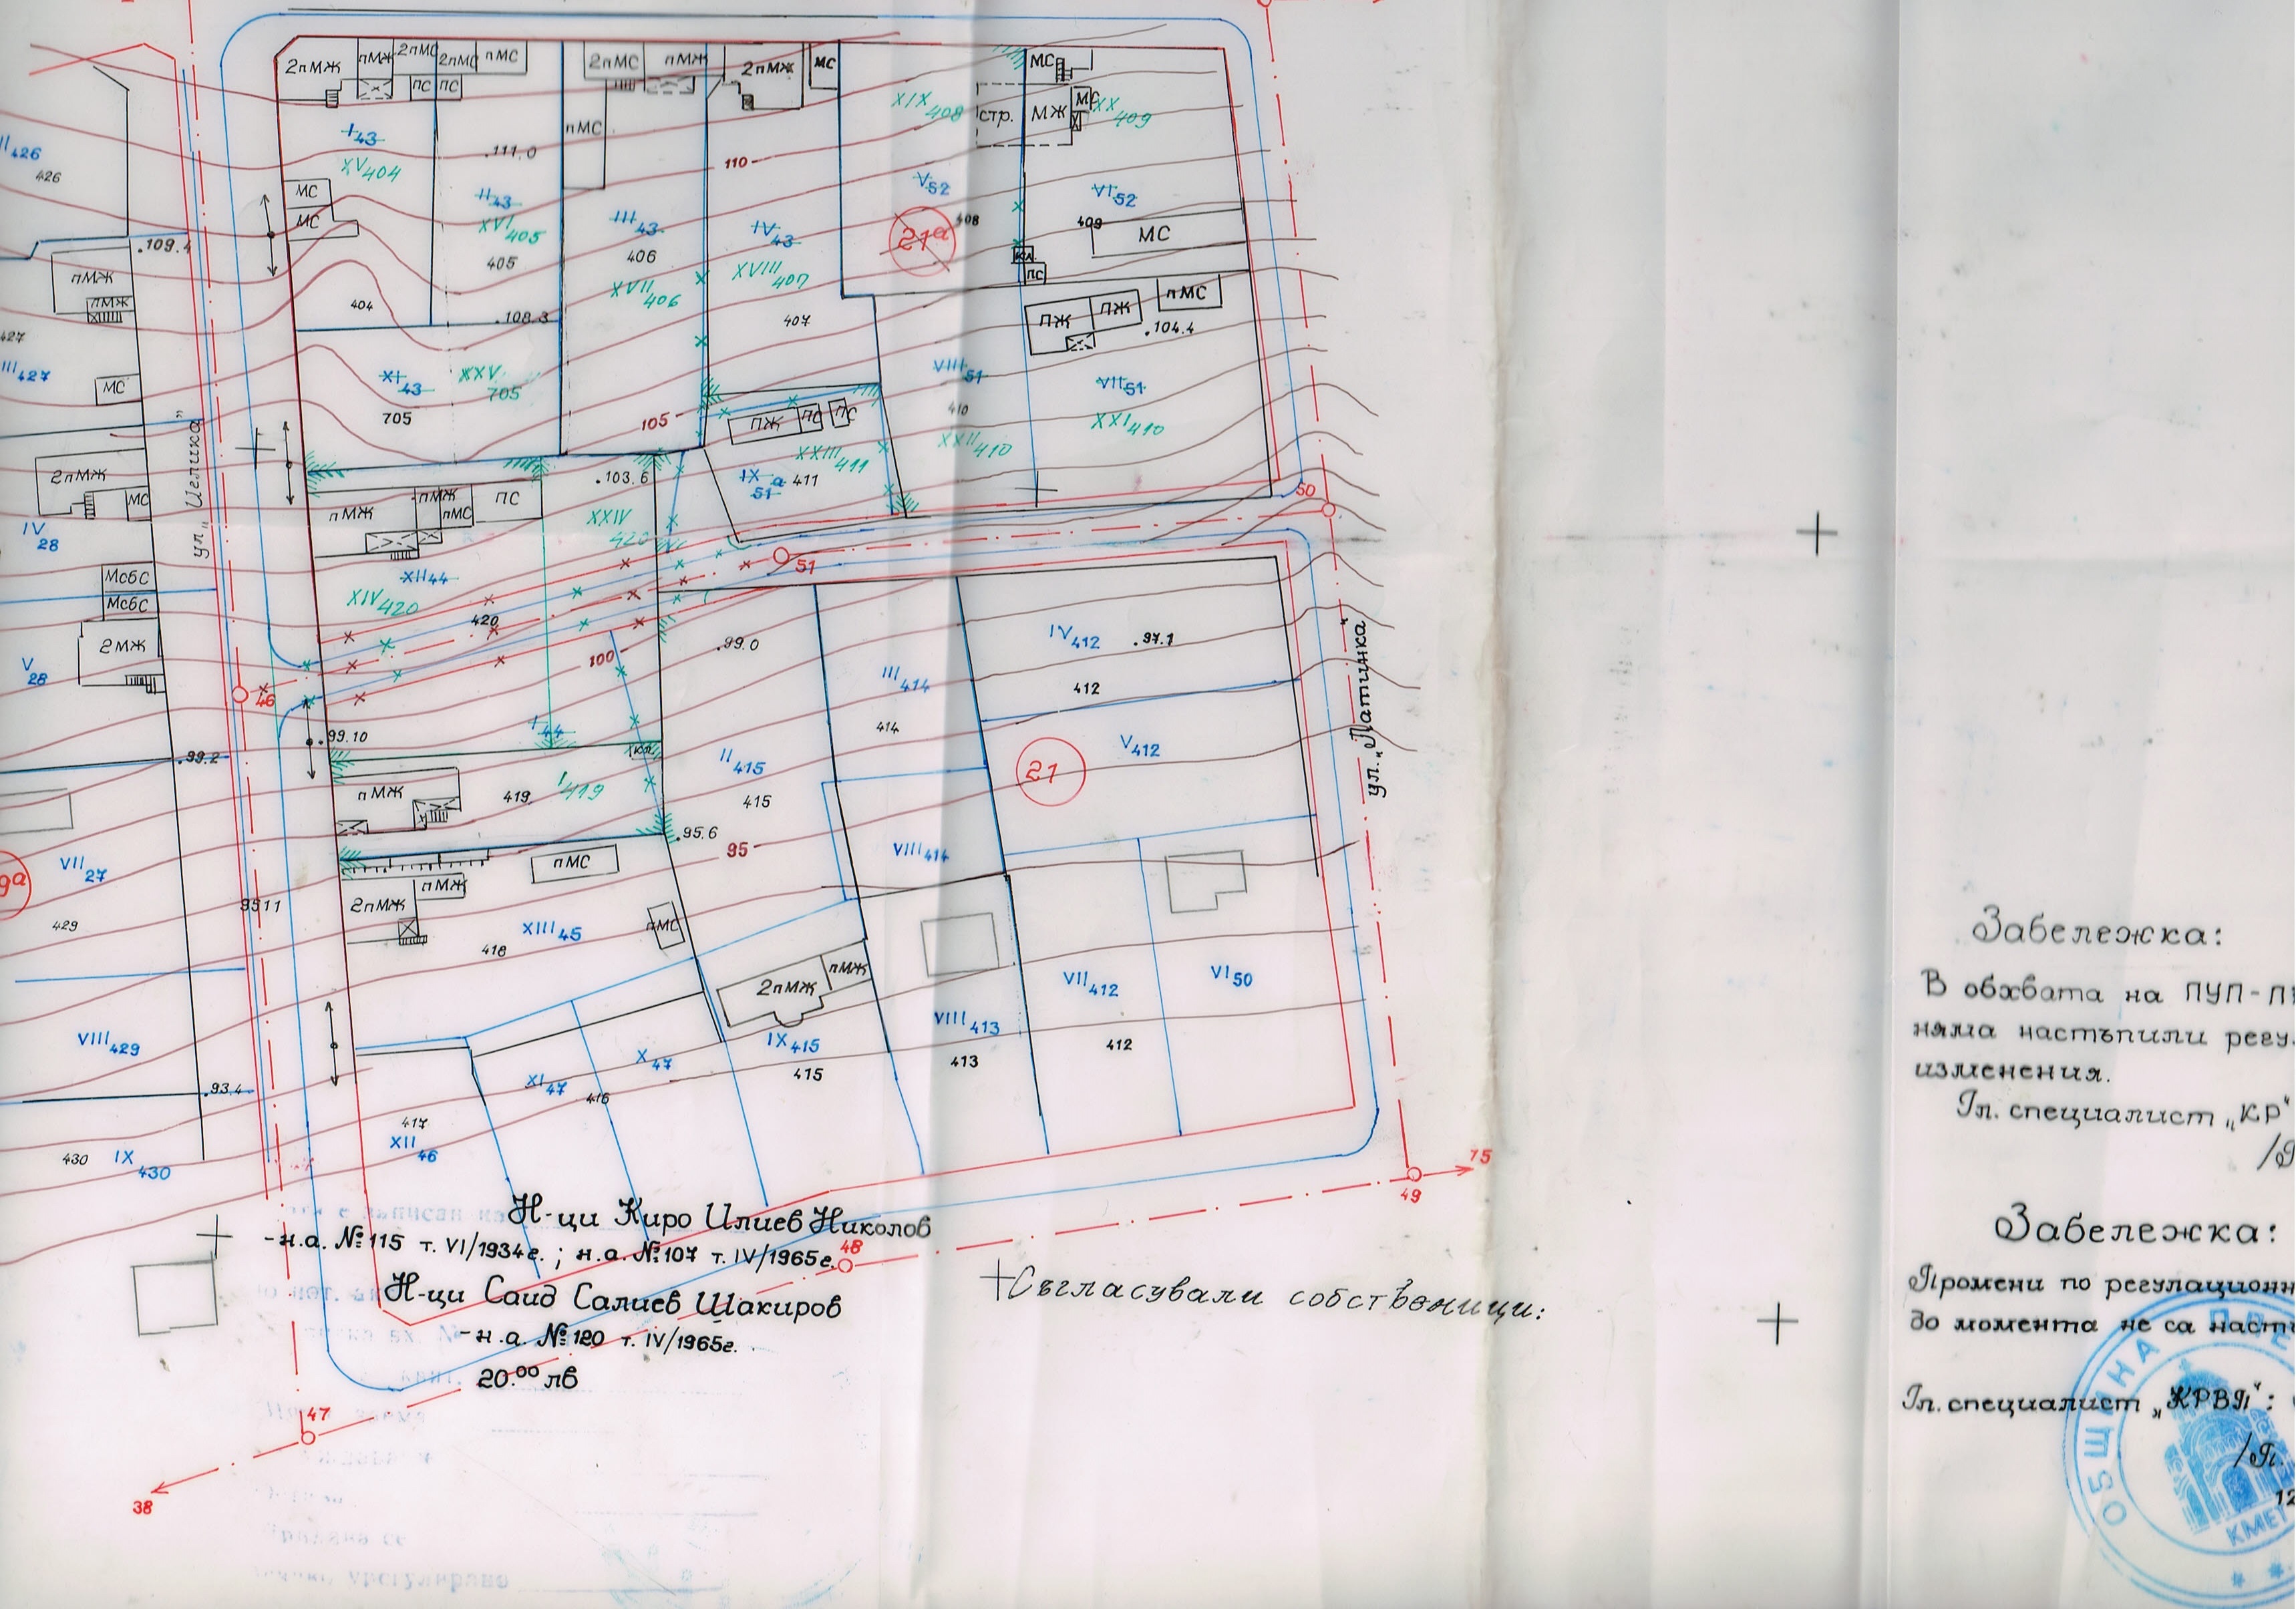 2пМЖ
пМЖ
2пМС
2пМС
пМС
ПС
ПС
2пМС
пМЖ
2пМЖ
МС
МС
МЖ
МС
стр.
пМС
I 43
XV 404
.111.0
110
XIX 408
XX 409
II 426
426
МС
МС
II 43
XVI 405
405
III 43
406
XVII 406
IV 43
XVIII 407
407
V 52
408
21а
VI 52
409
МС
кл.
ПС
.109.4
пМЖ
пМЖ
404
.108.3
ПЖ
ПЖ
пМС
.104.4
427
III 427
МС
XI 43
XXV 705
705
105
VIII 51
410
XXII 410
VII 51
XXI 410
ПЖ
ПС
ПС
XXIII 411
IX а 51
411
ул. „Иглика"
2пМЖ
МС
IV 28
.103.6
пМЖ
пМЖ
пМС
ПС
XXIV 420
50
51
МсбС
МсбС
XII 44
XIV 420
420
2МЖ
V 28
100
46
.99.0
IV 412
.97.1
412
III 414
414
ул. „Латинка"
.99.10
.99.2
I 44
кл.
II 415
415
21
V 412
пМЖ
419
I 419
.95.6
95
VIII 414
9а
VII 27
429
9511
пМС
пМЖ
2пМЖ
XIII 45
418
пМС
2пМЖ
пМЖ
VII 412
VI 50
VIII 429
VIII 413
413
412
IX 415
415
X 47
XI 47
416
.93.4
417
XII 46
430
IX 430
75
49
Н-ци Киро Илиев Николов
-н.а. №115 т. VI/1934г. ; н.а. №107 т. IV/1965г.
48
Н-ци Саид Салиев Шакиров
-н.а. №120 т. IV/1965г.
20.00 лв
Съгласували собственици:
47
38
Забележка:
В обхвата на ПУП-
няма настъпили
изменения.
Гл. специалист „КР"
Забележка:
Промени по
до момента не са
Гл. специалист „КРВП":
ОБЩИНА
КМЕТ
12